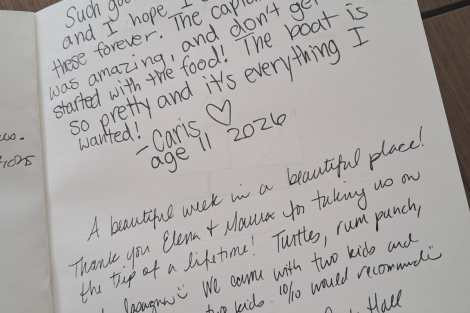 Such
and I hope I
these forever. The
was amazing, and don't get
started with the food! The boat is
so pretty and it's everything I
wanted!
- Caris ♡
age 11 2026
A beautiful week in a beautiful place!
Thank you Elena + for taking us on
the trip of a lifetime! Turtles, rum punch,
We came with two kids and
two kids. 10/10 would recommend
Hall